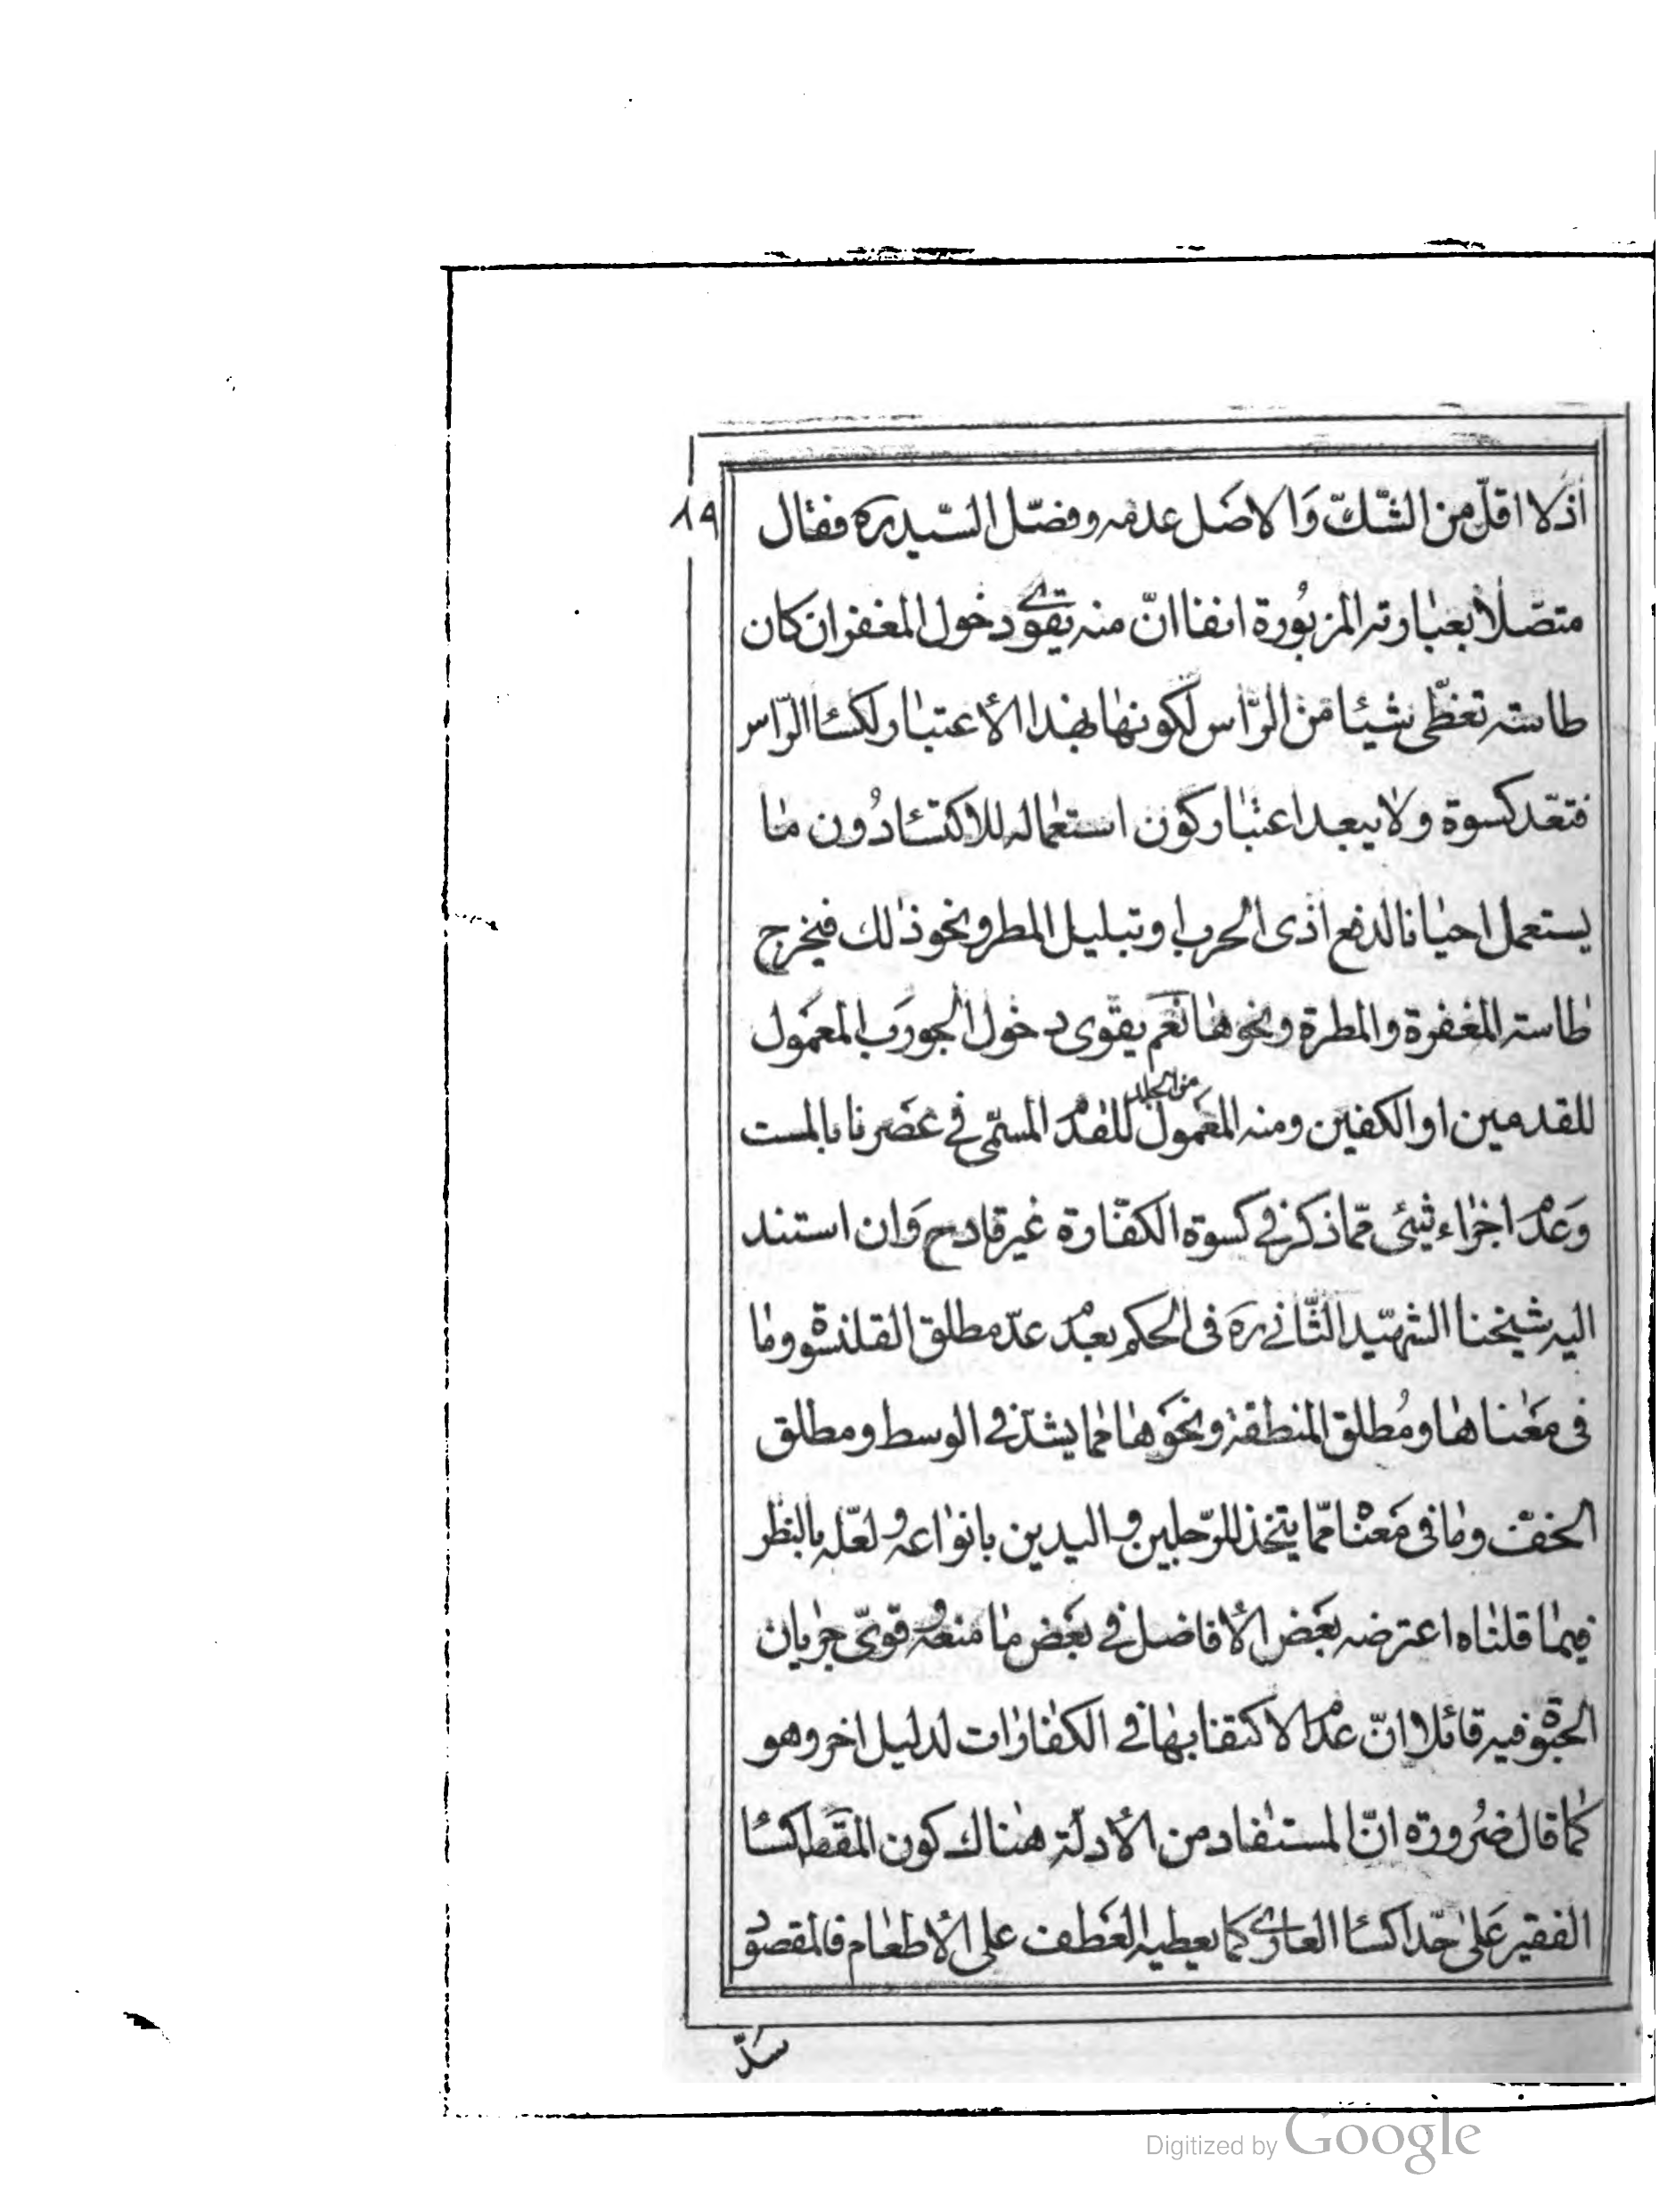 اذ لا اقلّ من الشّكّ وَالاصَل عدمه وفصّل السّيد ره فقال
١٩
متصّلاً بعبٰارته المزبُورة انفا انّ منه يقوى دخول المغفر ان كان
طاسته تغطّى شيئا من الرّاس لكونهٰا بهذا الأعتبٰار لكسٰا الرّاس
فتعّد كسوة ولا يبعد اعتبٰار كون استعماله للاكتسٰا دُون مٰا
يستعمل احيٰانا لدفع اذى الحرب او تبليل المطر ونحو ذٰلك فيخرج
طٰاسته المغفرة والمطرة ونحوهٰا نعَم يقوى دخول الجورَب المعمَول
للقدمين او الكفين ومنه المعمَول من الجلد للقدم المسمّى في عصَرنا بالمست
وَعدم اجزٰاء شيئ ممّا ذكر في كسوة الكفّارة غير قادح وَان استند
اليه شيخنا الشهيد الثّاني ره فى الحكم بعدم عدّ مطلق القلنسوة ومٰا
فى معَنٰاهٰا ومُطلق المنطقة ونحوَهٰا ممٰا يشدّ في الوسط ومطلق
الخفّ ومٰا فى مَعنٰاه ممّا يتخذ للرّجلين واليدين بانوٰاعه ولعّله بالنظر
فيمٰا قلنٰاه اعترضه بعَض الأفاضل في بعَض مٰا منعه وقوىّ جرٰيان
الحبوة فيه قائلا انّ عدم الاكتفٰا بهٰا في الكفٰارٰات لدليل اخر وهو
كمٰا قال ضرُورة انّ المستفٰاد من الأدلّة هنٰاك كون المقصَد اكسٰا
الفقير عَلىٰ حّد اكسٰا العارى كما يعطيه العَطف على الأطعٰام فالمقصوُد
سَدّ
Digitized by Google